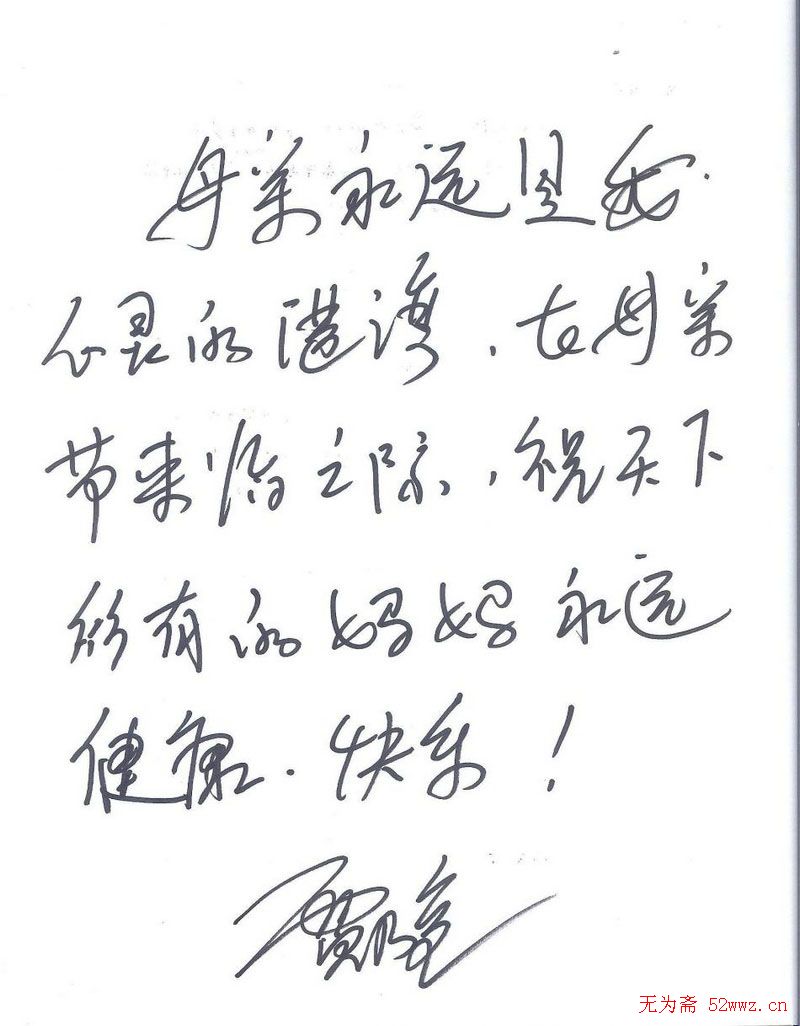 母亲永远是我
心灵的港湾，在母亲
节来临之际，祝天下
所有的妈妈永远
健康.快乐！
无为斋 52wwz.cn